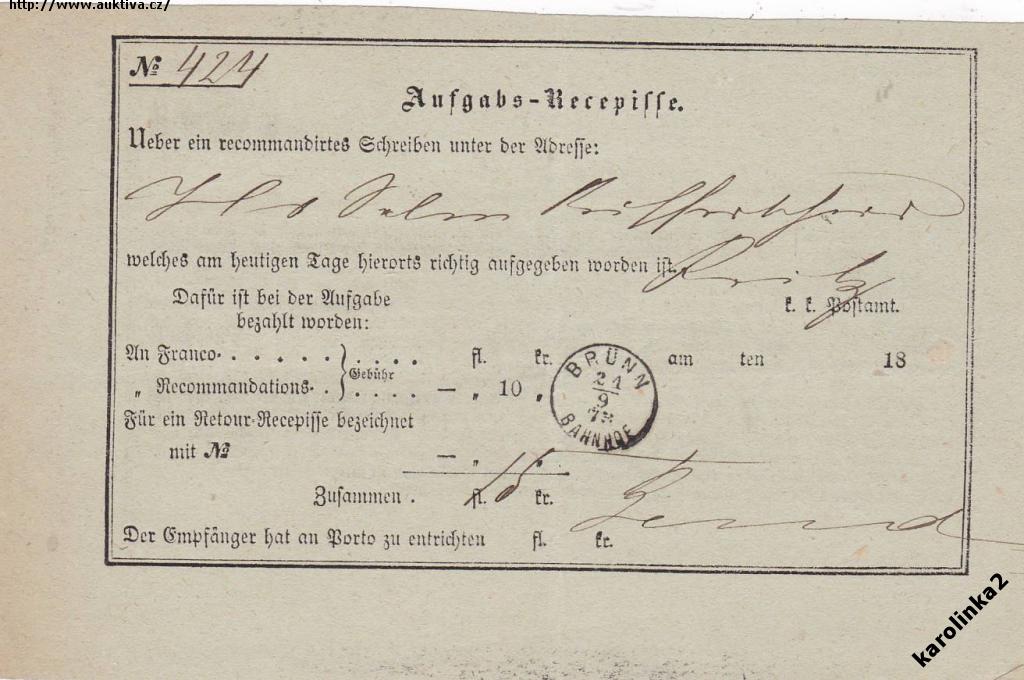 http://www.auktiva.cz/
№ 424
Aufgabs-Recepisse.
Ueber ein recommandirtes Schreiben unter der Adresse:
Salm
welches am heutigen Tage hierorts richtig aufgegeben worden ist.
Dafür ist bei der Aufgabe
bezahlt worden:
k. k. Postamt.
An Franco . . . . . . } Gebühr . . . . fl. kr.
„ Recommandations . . . . . . — „ 10 „
am ten 18
BRÜNN
BAHNHOF
Für ein Retour-Recepisse bezeichnet
mit № — „ „
Zusammen . fl. 15 kr.
Der Empfänger hat an Porto zu entrichten fl. kr.
karolinka2